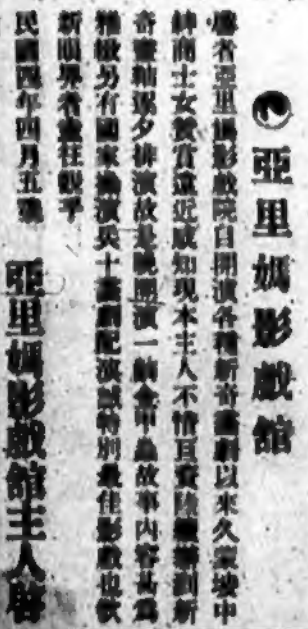 亞里媽影戲館
啓者亞里媽影戲院自開演各種新奇畫劇以來久蒙坡中
紳商士女贊賞遠近咸知現本主人不惜巨資
奇 夕排演故是晚開演一齣金甲蟲故事內容甚為
另有國家 演兵十 劇配演誠特別最佳影戲也欲
新眼界者盍往觀乎
民國四年四月五號
亞里媽影戲館主人啓